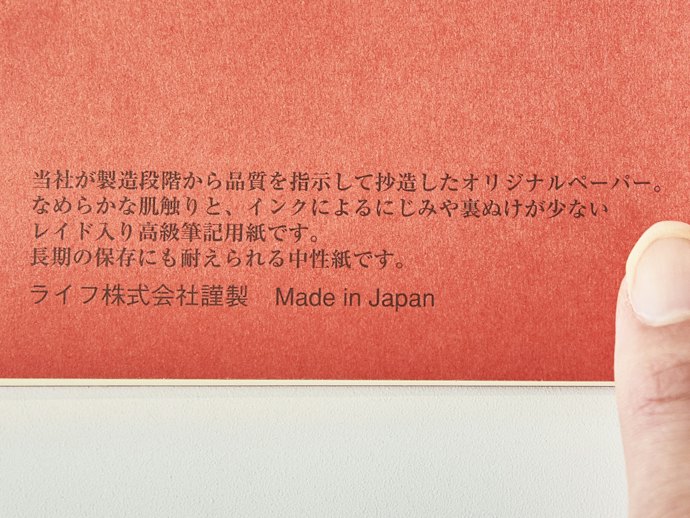 当社が製造段階から品質を指示して抄造したオリジナルペーパー。
なめらかな肌触りと、インクによるにじみや裏ぬけが少ない
レイド入り高級筆記用紙です。
長期の保存にも耐えられる中性紙です。
ライフ株式会社謹製　Made in Japan